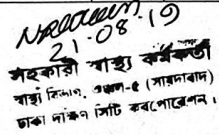 21-08-19
সহকারী স্বাস্থ্য কর্মকর্তা
স্বাস্থ্য বিভাগ, অঞ্চল-৫ (সায়দাবাদ)
ঢাকা দক্ষিণ সিটি কর্পোরেশন।